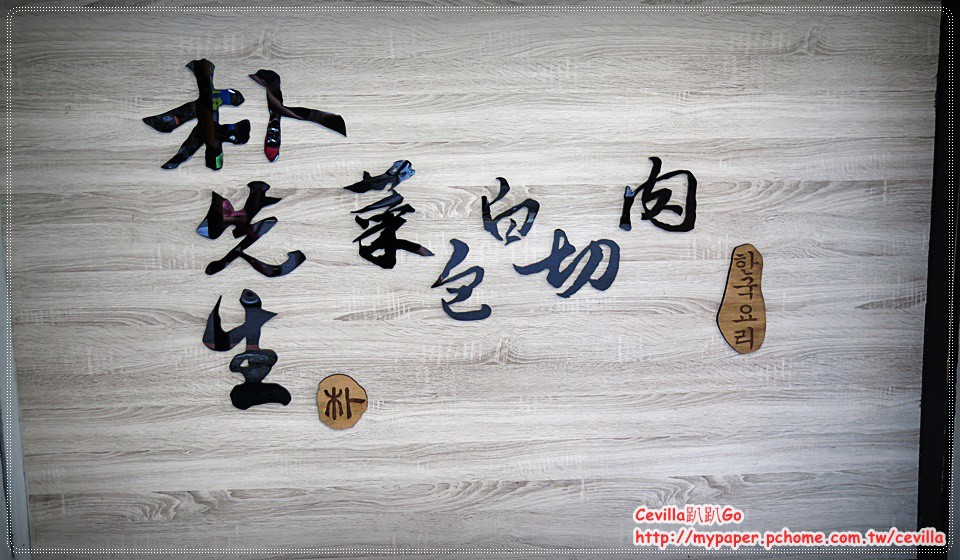 朴先生
朴
菜包白切肉
한국요리
Cevilla趴趴Go
http://mypaper.pchome.com.tw/cevilla